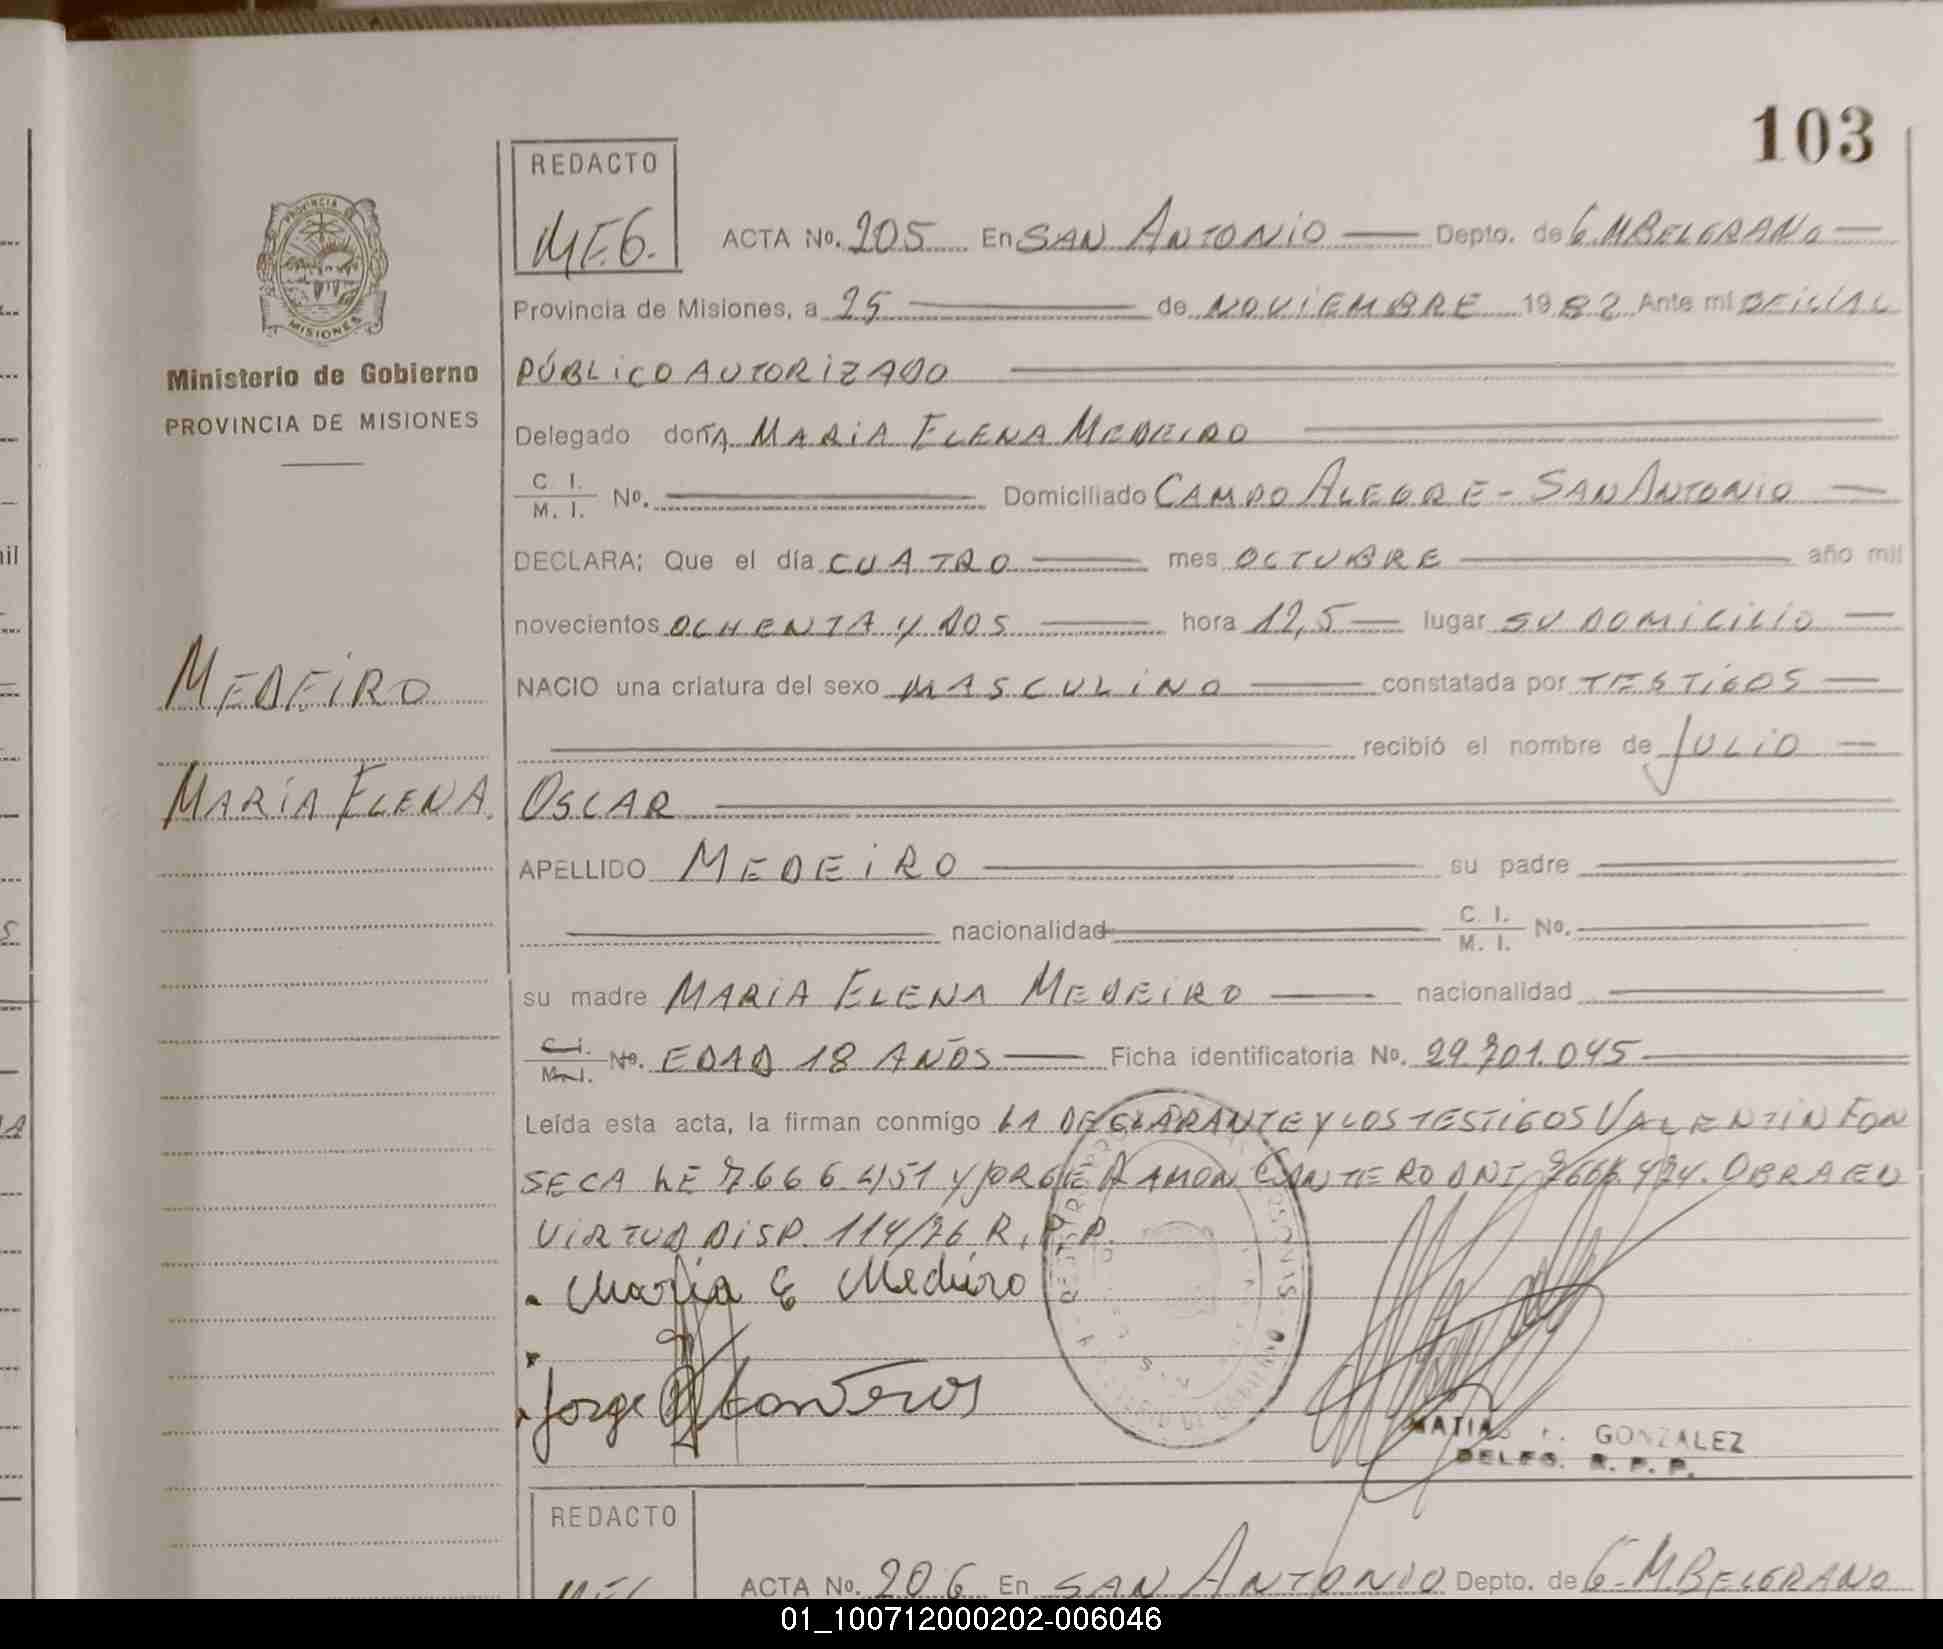 103
REDACTO
M.E.G.
ACTA No. 205 En SAN ANTONIO Depto. de G. M BELGRANO
Provincia de Misiones, a 25 de NOVIEMBRE 1982 Ante mí OFICIAL
PÚBLICO AUTORIZADO
Delegado doñA MARIA ELENA MEDEIRO
C. I.
M. I. No. Domiciliado CAMPO ALEGRE - SAN ANTONIO
DECLARA; Que el día CUATRO mes OCTUBRE año mil
novecientos OCHENTA Y DOS hora 12,5 lugar SU DOMICILIO
NACIO una criatura del sexo MASCULINO constatada por TESTIGOS
recibió el nombre de JULIO
OSCAR
APELLIDO MEDEIRO su padre
nacionalidad C. I.
M. I. No.
su madre MARIA ELENA MEDEIRO nacionalidad
C. I.
M. I. No. EDAD 18 AÑOS Ficha identificatoria No. 29.701.045
Leída esta acta, la firman conmigo LA DECLARANTE Y LOS TESTIGOS VALENTIN FON
SECA LE 7.666.451 Y JORGE RAMON CANTERO DNI OBRA EN
VIRTUD DISP. 114/76 R.P.P.
Maria E Medeiro
Jorge Canteros
GONZALEZ
DELEG. R. P. P.
PROVINCIA DE
MISIONES
Ministerio de Gobierno
PROVINCIA DE MISIONES
MEDEIRO
MARÍA ELENA.
REDACTO
ACTA No. 206 En SAN ANTONIO Depto. de G. M. BELGRANO
01_100712000202-006046